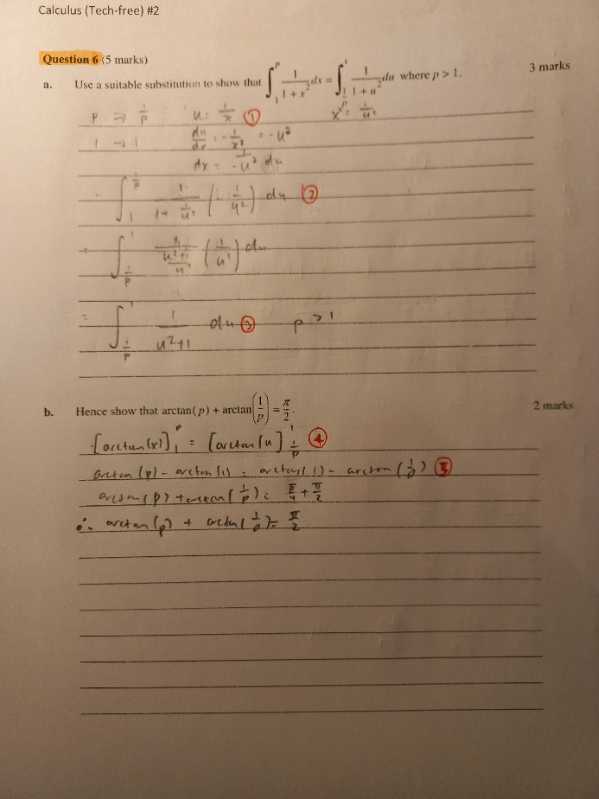 Calculus (Tech-free) #2
Question 6 (5 marks)
a. Use a suitable substitution to show that ∫₁^p 1/(1+x²) dx = ∫_{1/p}^1 1/(1+u²) du where p > 1. 3 marks
p → 1/p u = 1/x ①
1 → 1 du/dx = -1/x² = -u²
dx =
∫₁^{1/p} 1/(1+1/u²) (-1/u²) du ②
∫_{1/p}^1 1/((u²+1)/u²) (1/u²) du
= ∫_{1/p}^1 1/(u²+1) du ③ p > 1
b. Hence show that arctan(p) + arctan(1/p) = π/2. 2 marks
[arctan(x)]₁^p = [arctan(u)]_{1/p}^1 ④
arctan(p) - arctan(1) = arctan(1) - arctan(1/p) ⑤
arctan(p) + arctan(1/p) =
∴ arctan(p) + arctan(1/p) = π/2